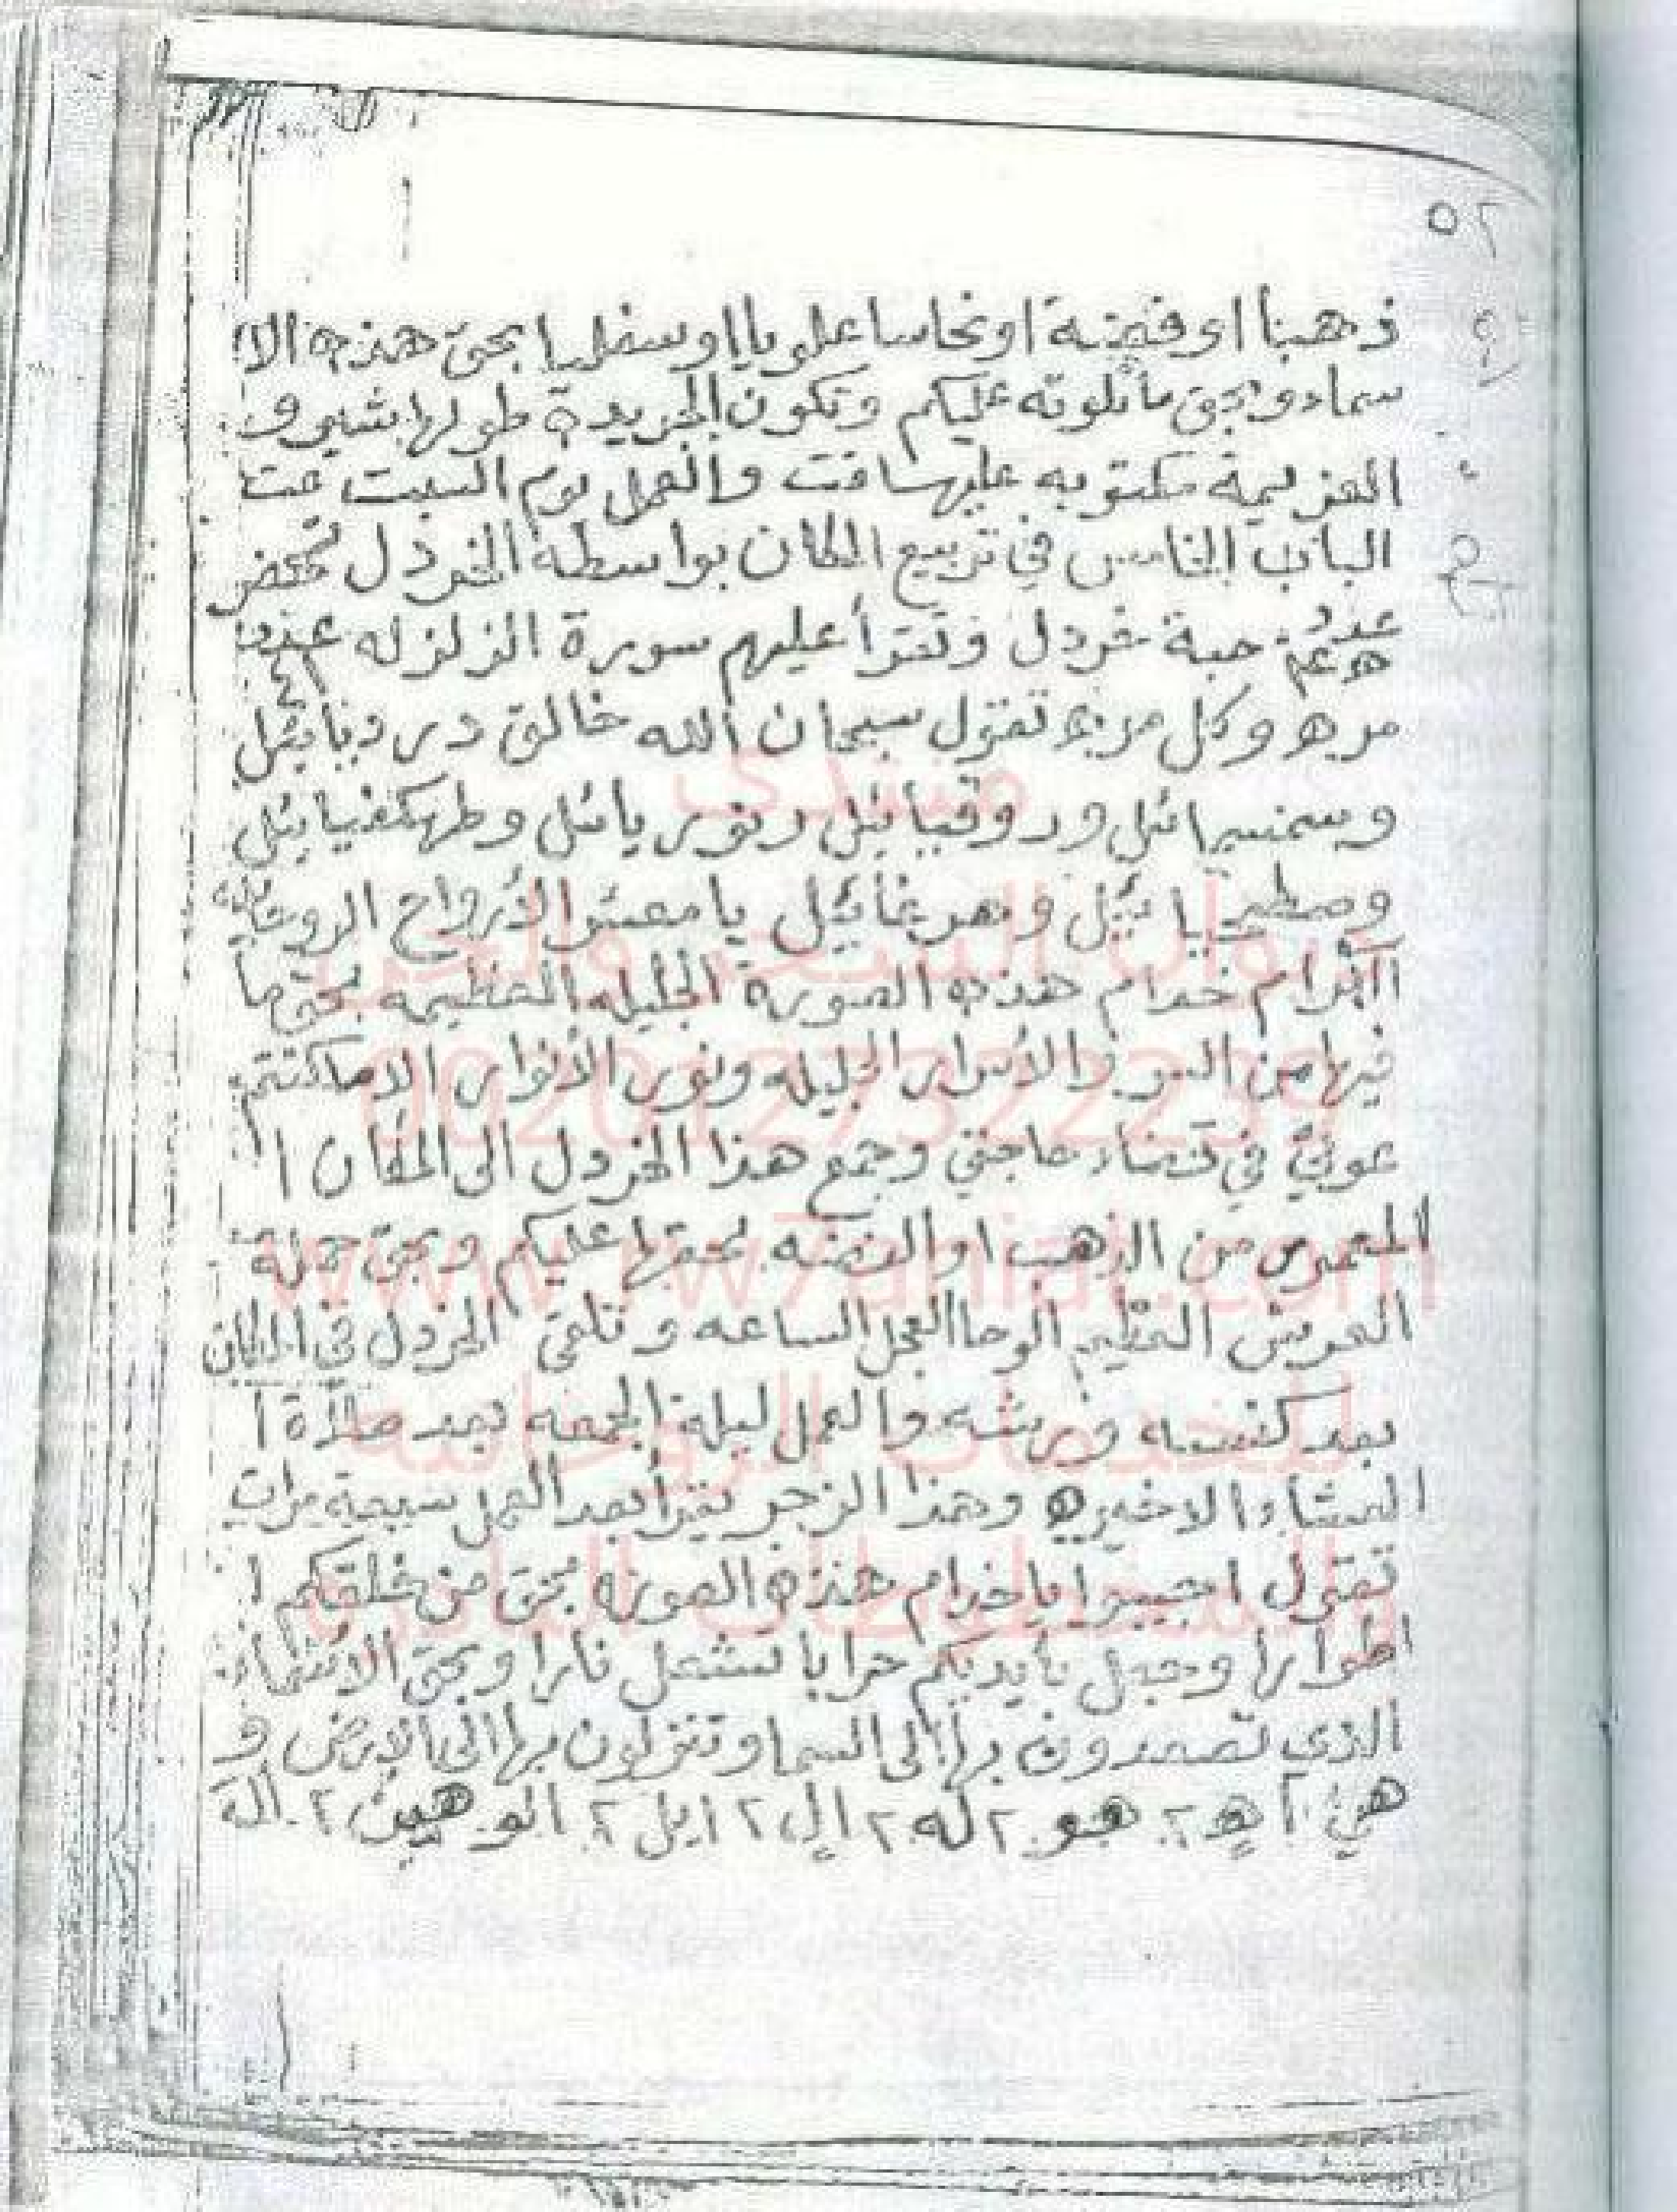 ٥٢
ذهبنا او فضة او نحاسا علويا او سفليا بحق هذه الا
سماء وبحق ما تلوته عليكم وتكون الجريدة طولها شبر و
العزيمة مكتوبه عليها قت والعمل يوم السبت تمت
الباب الخامس في تربيع المكان بواسطة الخردل تحضر
عدد حبة خردل وتقرأ عليهم سورة الزلزله عدد
مره وكل مره تقول سبحان الله خالق دردبايئل
وسمنسرائل وروقيائل ونوريائل وطهكفيائل
وصطريائيل وهرغائيل يا معشر الأرواح الروحانية
الكرام خدام هذه الصورة الجليله العظيمه بحق ما
فيها من السر والأسرار الجليله ونور الأنوار الا ما كنتم
عوني في قضاء حاجتي وجمع هذا الخردل الى المكان ا
المعمور من الذهب او الفضه بحقها عليكم وبحق حملة
العرش العظيم الوحا العجل الساعه وتلقي الخردل في المكان
بعد كنسه ورشه والعمل ليلة الجمعه بعد صلاة ا
العشاء الاخيره وهذا الزجر يقرأ بعد العمل سبعة مرات
تقول اجيبوا يا خدام هذه الصوره بحق من خلقكم ا
اطوارا وجعل بأيديكم حرابا تشتعل نارا وبحق الأسماء
الذي تصعدون بها الى السما وتنزلون بها الى الارض و
هي اه ٢ هو ٢ له ٢ ال ٢ ايل ٢ الوهين ٢ الة
منتدى
00201273222391
www.rw7aniat.com
للخدمات الروحانية